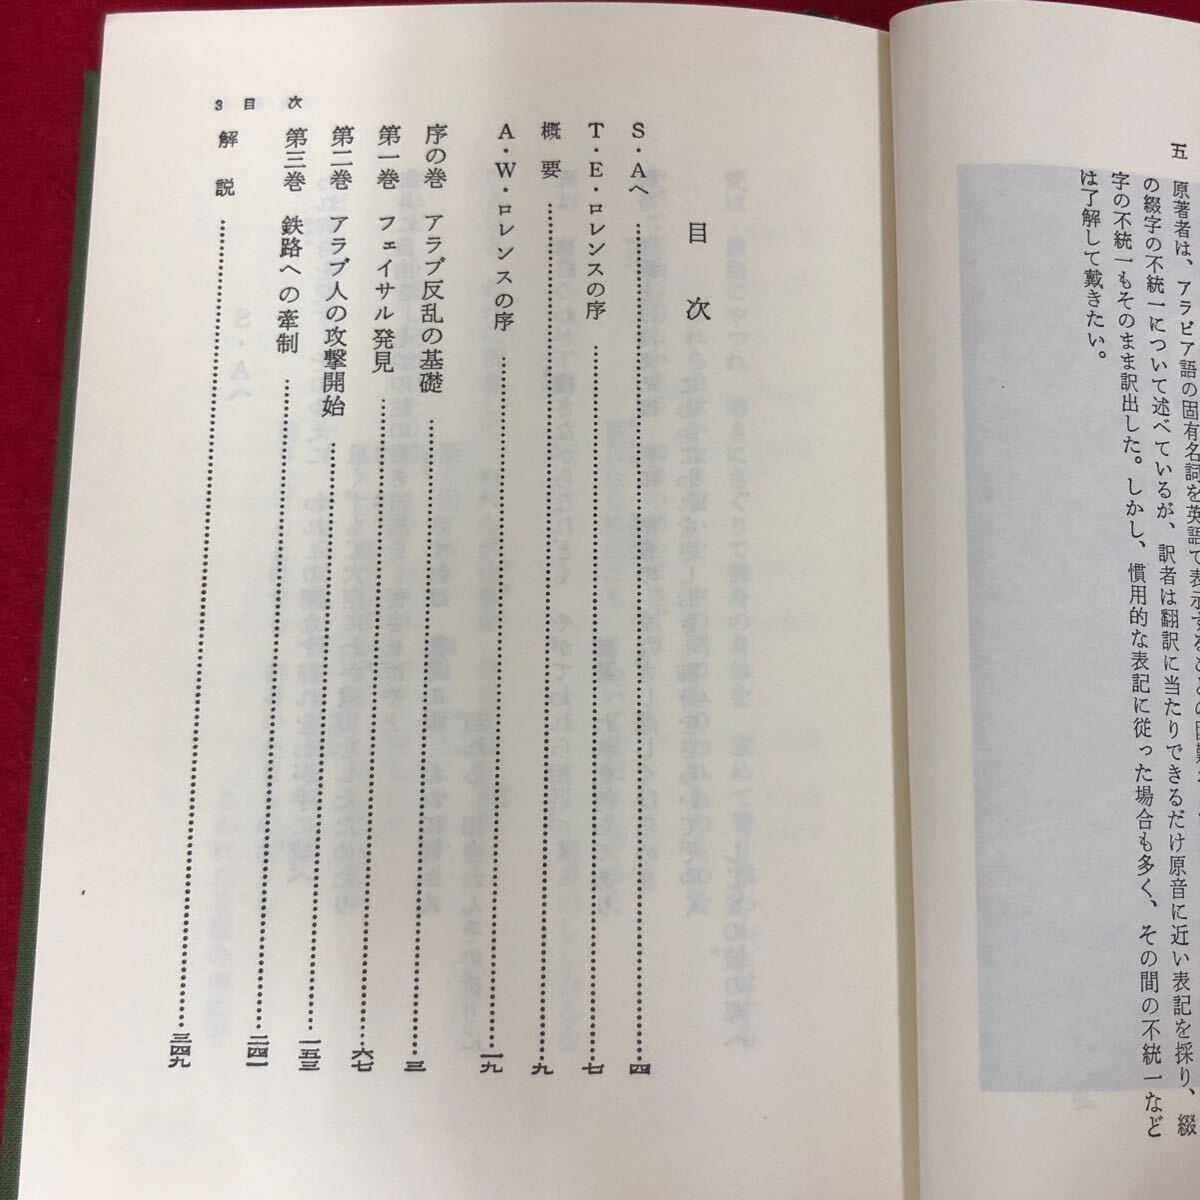 五　原著者は、アラビア語の固有名詞を英語で表示することの困難
の綴字の不統一について述べているが、訳者は翻訳に当たりできるだけ原音に近い表記を採り、綴
字の不統一もそのまま訳出した。しかし、慣用的な表記に従った場合も多く、その間の不統一など
は了解して戴きたい。
目次
S・Aへ……四
T・E・ロレンスの序……七
概要……九
A・W・ロレンスの序……一九
序の巻　アラブ反乱の基礎……三
第一巻　フェイサル発見……六七
第二巻　アラブ人の攻撃開始……一五三
第三巻　鉄路への牽制……二四一
解説……三四九
3 目次